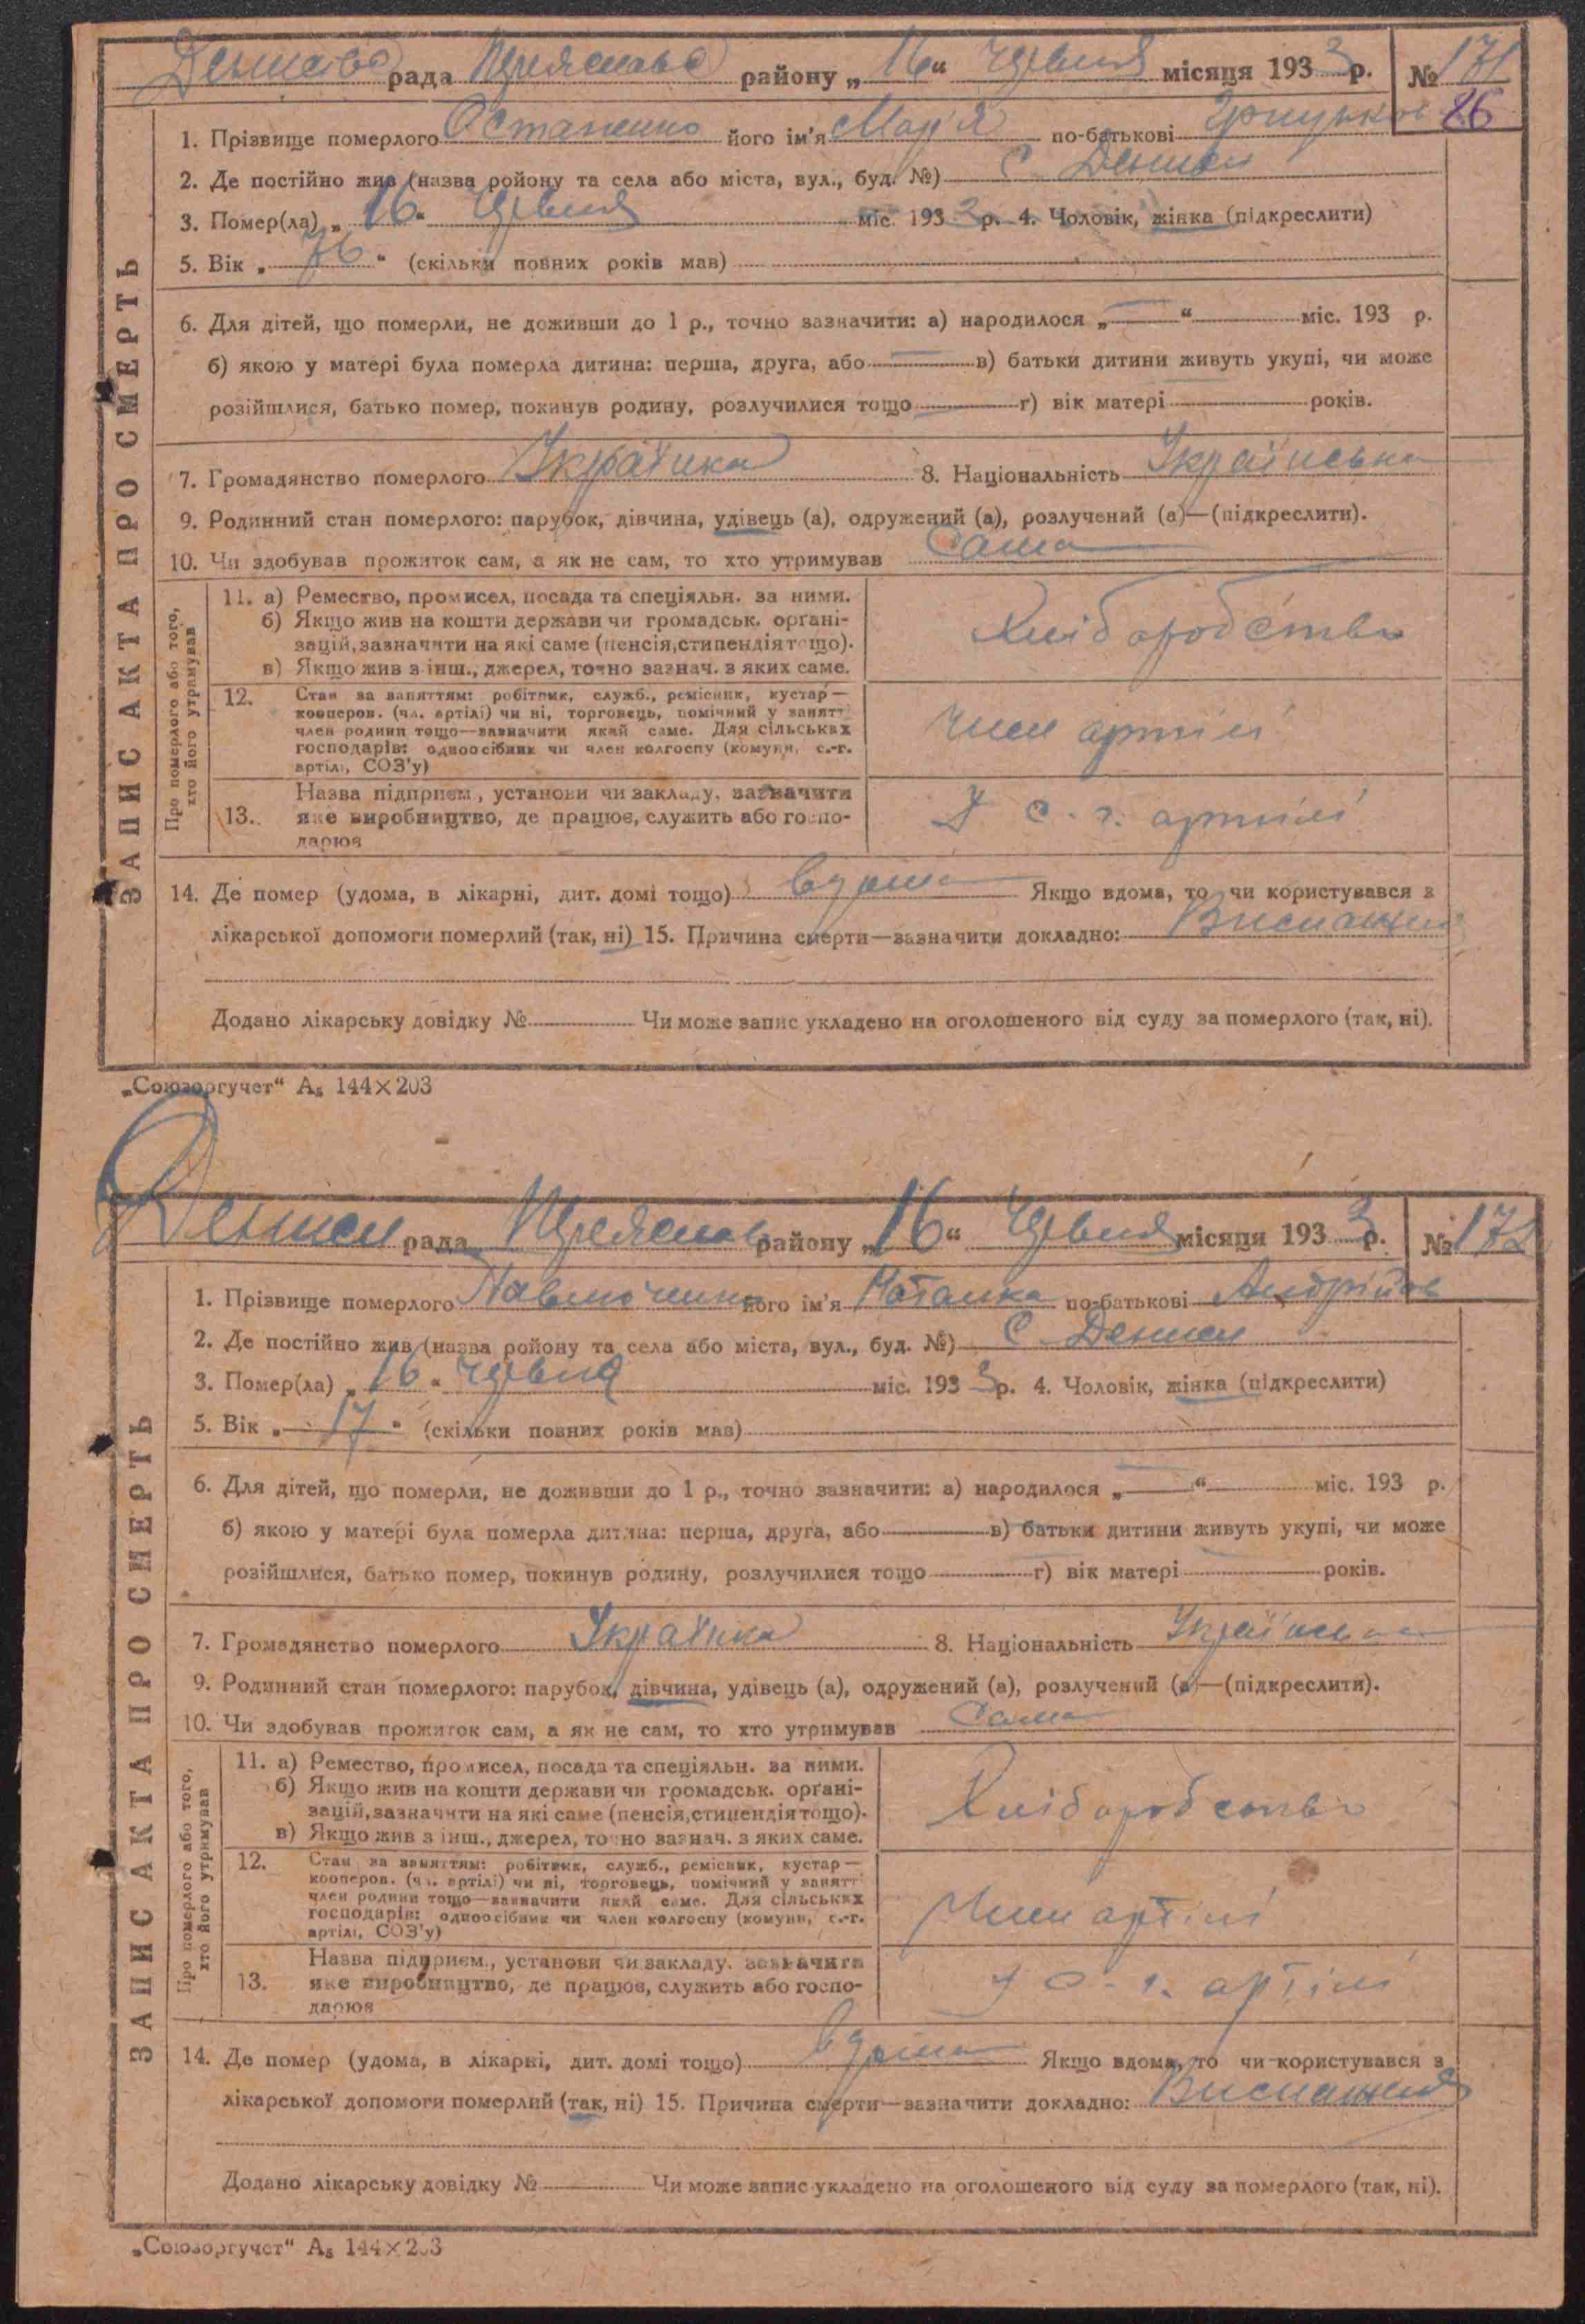 рада району „ 16 “ Червня місяця 1933 р. № 171
86
1. Прізвище померлого Остапенко його ім'я Мар'я по-батькові
2. Де постійно жив (назва ройону та села або міста, вул., буд. №) С. Деньги
3. Помер(ла) „ 16 “ Червня міс. 1933 р. 4. Чоловік, жінка (підкреслити)
5. Вік „ 76 “ (скільки повних років мав)
6. Для дітей, що померли, не доживши до 1 р., точно зазначити: а) народилося „ — “ міс. 193 р.
б) якою у матері була померла дитина: перша, друга, або — в) батьки дитини живуть укупі, чи може
розійшлися, батько помер, покинув родину, розлучилися тощо г) вік матері років.
7. Громадянство померлого Українка 8. Національність Українська
9. Родинний стан померлого: парубок, дівчина, удівець (а), одружений (а), розлучений (а)—(підкреслити).
10. Чи здобував прожиток сам, а як не сам, то хто утримував Сама
ЗАПИС АКТА ПРО СМЕРТЬ
Про померлого або того,
хто його утримував
11. а) Ремество, промисел, посада та спеціяльн. за ними.
б) Якщо жив на кошти держави чи громадськ. орґані-
зацій, зазначити на які саме (пенсія, стипендія тощо).
в) Якщо жив з інш., джерел, точно зазнач. з яких саме.
Хліборобство
12. Стан за заняттям: робітник, служб., ремісник, кустар—
кооперов. (чл. артілі) чи ні, торговець, помічний у занятт
член родини тощо—зазначити який саме. Для сільських
господарів: одноосібник чи член колгоспу (комуни, с.-г.
артілі, СОЗ'у)
Член артілі
13. Назва підприєм., установи чи закладу, зазначити
яке виробництво, де працює, служить або госпо-
дарює
У с. г. артілі
14. Де помер (удома, в лікарні, дит. домі тощо) вдома Якщо вдома, то чи користувався з
лікарської допомоги померлий (так, ні) 15. Причина смерти—зазначити докладно: Виснаження
Додано лікарську довідку № Чи може запис укладено на оголошеного від суду за померлого (так, ні).
„Союзоргучет“ А₅ 144×203
рада району „ 16 “ Червня місяця 1933 р. № 172
1. Прізвище померлого Павлюченко його ім'я Наталка по-батькові Андріїов
2. Де постійно жив (назва ройону та села або міста, вул., буд. №) С. Деньги
3. Помер(ла) „ 16 “ Червня міс. 1933 р. 4. Чоловік, жінка (підкреслити)
5. Вік „ 17 “ (скільки повних років мав)
6. Для дітей, що померли, не доживши до 1 р., точно зазначити: а) народилося „ — “ міс. 193 р.
б) якою у матері була померла дитина: перша, друга, або в) батьки дитини живуть укупі, чи може
розійшлися, батько помер, покинув родину, розлучилися тощо г) вік матері років.
7. Громадянство померлого Українка 8. Національність Українська
9. Родинний стан померлого: парубок, дівчина, удівець (а), одружений (а), розлучений (а)—(підкреслити).
10. Чи здобував прожиток сам, а як не сам, то хто утримував Сама
ЗАПИС АКТА ПРО СМЕРТЬ
Про померлого або того,
хто його утримував
11. а) Ремество, промисел, посада та спеціяльн. за ними.
б) Якщо жив на кошти держави чи громадськ. орґані-
зацій, зазначити на які саме (пенсія, стипендія тощо).
в) Якщо жив з інш., джерел, точно зазнач. з яких саме.
Хліборобство
12. Стан за заняттям: робітник, служб., ремісник, кустар—
кооперов. (чл. артілі) чи ні, торговець, помічний у занятт
член родини тощо—зазначити який саме. Для сільських
господарів: одноосібник чи член колгоспу (комуни, с.-г.
артілі, СОЗ'у)
Член артілі
13. Назва підприєм., установи чи закладу, зазначити
яке виробництво, де працює, служить або госпо-
дарює
У с. г. артілі
14. Де помер (удома, в лікарні, дит. домі тощо) вдома Якщо вдома, то чи користувався з
лікарської допомоги померлий (так, ні) 15. Причина смерти—зазначити докладно: Виснаження
Додано лікарську довідку № Чи може запис укладено на оголошеного від суду за померлого (так, ні).
„Союзоргучет“ А₅ 144×203